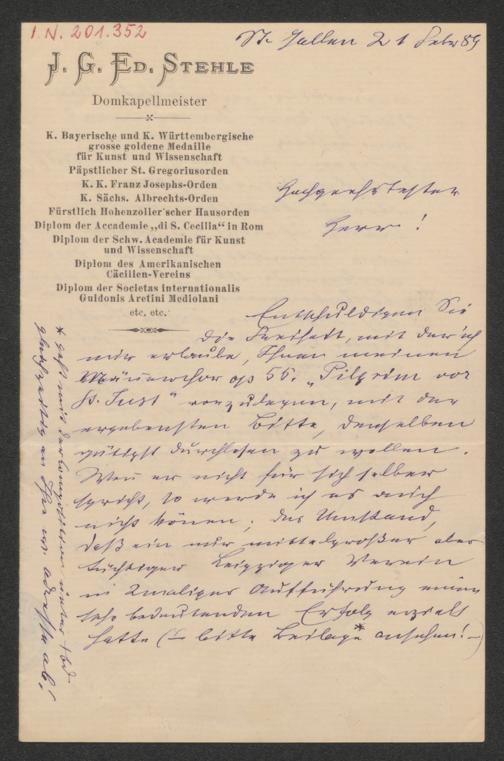 I.N. 201.352
St. Gallen 21 Febr 89
J. G. ED. STEHLE
Domkapellmeister
K. Bayerische und K. Württembergische
grosse goldene Medaille
für Kunst und Wissenschaft
Päpstlicher St. Gregoriusorden
K. K. Franz Josephs-Orden
K. Sächs. Albrechts-Orden
Fürstlich Hohenzoller'scher Hausorden
Diplom der Accademie „di S. Cecilia“ in Rom
Diplom der Schw. Academie für Kunst
und Wissenschaft
Diplom des Amerikanischen
Cäcilien-Vereins
Diplom der Societas internationalis
Guidonis Aretini Mediolani
etc. etc.
Hochgeehrtester
Herr!
Entschuldigen Sie
die Freiheit, mit der ich
mir erlaube, Ihnen meinen
Männerchor op 56. „Pilgrim vor
St. Just“ vorzulegen, mit der
ergebensten Bitte, denselben
gütigst durchlesen zu wollen.
Wenn er nicht für sich selber
spricht, so werde ich es auch
nicht können; der Umstand,
daß ein nur mittelgroßer aber
tüchtiger Leipziger Verein
in 2maliger Aufführung einen
sehr bedeutenden Erfolg erzielt
hatte (bitte Beilage* ansehen!)
* geht mit der Composition unter
gleichzeitig an Ihre Adresse ab!